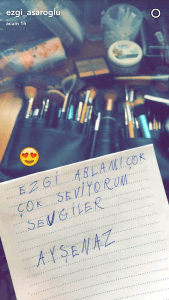 ezgi_asaroglu
EZGİ ABLAMI ÇOK
ÇOK SEVİYORUM
SEVGİLER
AYŞENAZ